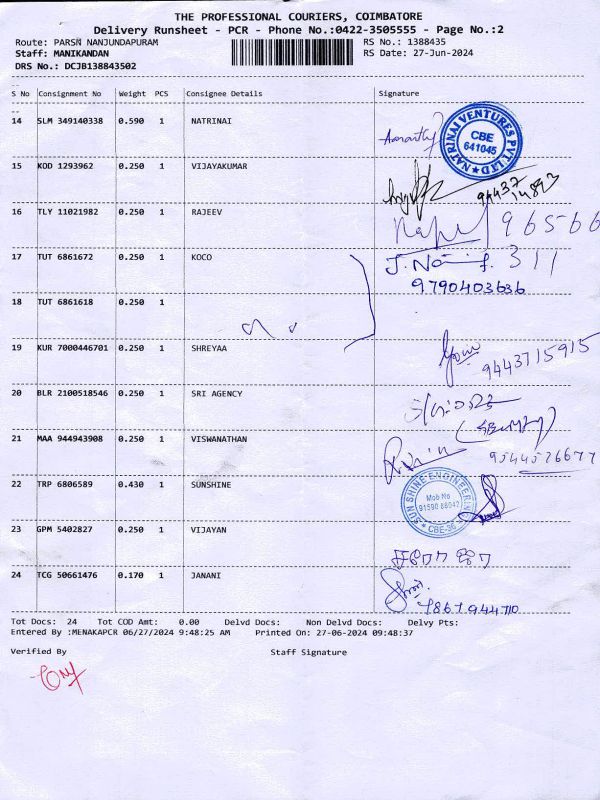 THE PROFESSIONAL COURIERS, COIMBATORE
Delivery Runsheet - PCR - Phone No.:0422-3505555 - Page No.:2
Route: PARSN NANJUNDAPURAM RS No.: 1388435
Staff: MANIKANDAN RS Date: 27-Jun-2024
DRS No.: DCJB138843502
S No Consignment No Weight PCS Consignee Details Signature
14 SLM 349140338 0.590 1 NATRINAI
NATRINAI VENTURES PVT LTD
CBE
641045
15 KOD 1293962 0.250 1 VIJAYAKUMAR
94437
16 TLY 11021982 0.250 1 RAJEEV
96566
17 TUT 6861672 0.250 1 KOCO
311
9790403636
18 TUT 6861618 0.250 1
19 KUR 7000446701 0.250 1 SHREYAA
9443715915
20 BLR 2100518546 0.250 1 SRI AGENCY
21 MAA 944943908 0.250 1 VISWANATHAN
9544526677
22 TRP 6806589 0.430 1 SUNSHINE
SUN SHINE ENGINEERING
Mob No
91590 88042
CBE-36
23 GPM 5402827 0.250 1 VIJAYAN
24 TCG 50661476 0.170 1 JANANI
9867944710
Tot Docs: 24 Tot COD Amt: 0.00 Delvd Docs: Non Delvd Docs: Delvy Pts:
Entered By :MENAKAPCR 06/27/2024 9:48:25 AM Printed On: 27-06-2024 09:48:37
Verified By Staff Signature